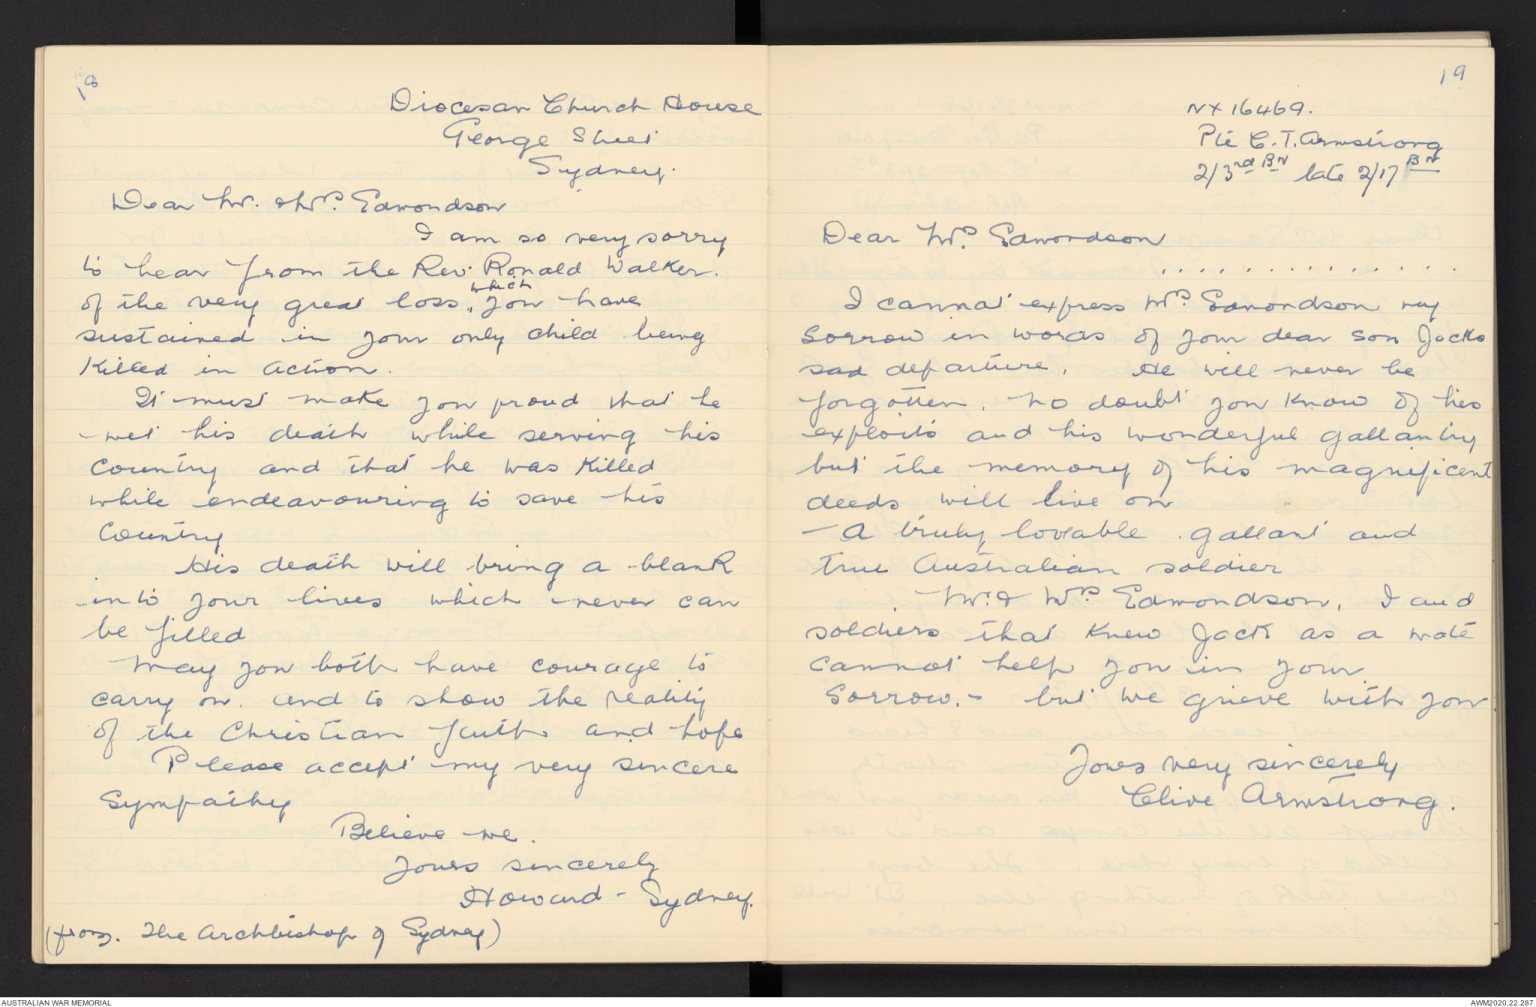 18
Diocesan Church House
George Street
Sydney.
Dear Mr. & Mrs. Edmondson
I am so very sorry
to hear from the Rev. Ronald Walker.
of the very great loss, which you have
sustained in your only child being
Killed in action.
It must make you proud that he
met his death while serving his
Country and that he was Killed
while endeavouring to save his
Country
His death will bring a blank
into your lives which never can
be filled
May you both have courage to
carry on. and to show the reality
of the Christian faith and hope
Please accept my very sincere
Sympathy
Believe me.
Yours sincerely
Howard - Sydney.
(from. The Archbishop of Sydney)
19
NX 16469.
Pte C. T. Armstrong
2/3rd Bn late 2/17 Bn
Dear Mrs. Edmondson
. . . . . . . . . . . . . .
I cannot express Mrs. Edmondson my
Sorrow in words of your dear son Jacks
sad departure. He will never be
forgotten. No doubt you know of his
exploits and his wonderful gallantry
but the memory of his magnificent
deeds will live on
- A truly loveable. gallant and
true Australian soldier
. Mr. & Mrs Edmondson. I and
soldiers that knew Jack as a mate
cannot help you in your
Sorrow. - but we grieve with you
Yours very sincerely
Clive Armstrong.
AUSTRALIAN WAR MEMORIAL
AWM2020.22.287